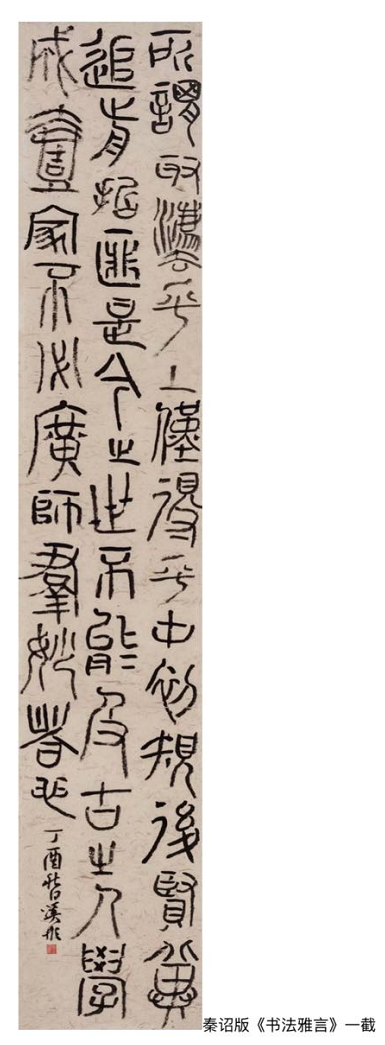 所謂取灋乎上僅得乎中初規後賢冀
追前哲匪是今之世不能及古之人學
成壹家不必廣師羣妙者也
丁酉
秦诏版《书法雅言》一截